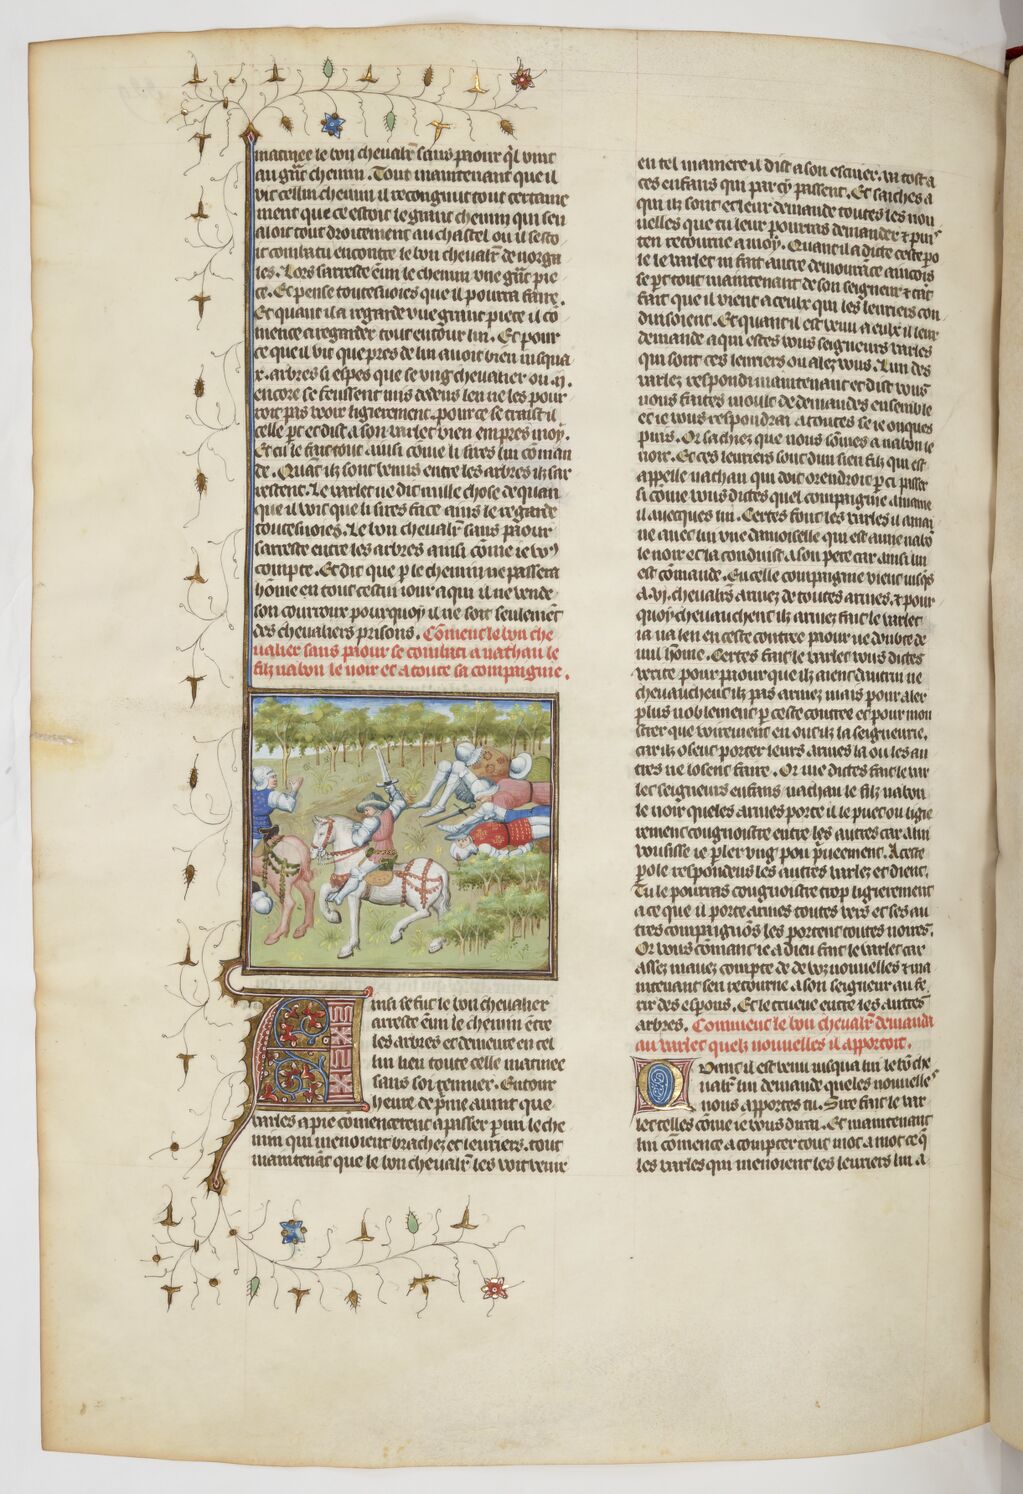 matinee le bon chevalr̃ sans paour q̃l vint
au grãt chemin. Tout maintenant que il
vit cellui chemin il recongnut tout certaine
ment que ce estoit le grant chemin qui sen
aloit tout droitement au chastel ou il sesto
it combatu encontre le bon chevalr̃ de norga
les. Lors sarreste ẽmi le chemin une grãt pie
ce. Et pense toutesuoies que il pourra faire.
Et quant il a regarde une grant piece il cõ
mence a regarder tout entour lui. Et pour
ce que il vit que pres de lui avoit bien iusqua
x. arbres si espes que se ung chevalier ou .ij.
encore se feussent mis dedens len ne les pour
roit pas veoir ligierement. pour ce se traist il
celle p̃t et dist a son varlet vien empres moy.
Et cil le fait tout ainsi cõme li sires lui cõman
de. Quãt ilz sont venus entre les arbres ilz sar
restent. Le varlet ne dit nulle chose de quan
que il voit que li sires face ains le regarde
toutesuoies. Le bon chevalr̃ sans paour
sarreste entre les arbres ainsi cõme ie vo9
compte. Et dit que p̃ le chemin ne passera
hõme en tout cestui iour a qui il ne vende
son courroux pourquoy il ne soit seulemẽt
des chevaliers prisons. Cõment le bon che
valier sans paour se combati a nathan le
filz nabon le noir et a toute sa compaignie.
Ainsi se fut le bon chevalier
arreste ẽmi le chemin ẽtre
les arbres et demeure en cel
lui lieu toute celle matinee
sans soi remuer. Entour
heure de p̃me avint que
varles a pie cõmencerent a passer p̃mi le che
min qui menoient brachez et levriers. tout
maintenãt que le bon chevalr̃ les voit venir
en tel maniere il dist a son escuier. va tost a
ces enfans qui par cy passent. Et saiches a
qui ilz sont et leur demande toutes les nou
uelles que tu leur pourras demander et puis
ten retourne a moy. Quant il a dicte ceste po
le le varlet ni fait autre demourãce aincois
se p̃t tout maintenant de son seigneur et tãt
fait que il vient a ceulx qui les levriers con
duisoient. Et quant il est venu a eulx il leur
demande a qui estes vous seigneurs varles
qui sont ces levriers ou alez vous. Lun des
varlez respondi maintenant et dist vous
nous faites moult de demandes ensemble
et ie vous respondrai a toutes se ie onques
puis. Or sachiez que nous sõmes a nabon le
noir. Et ces levriers sont dun sien filz qui est
appelle nathan qui doit orendroit p̃ ci passer
si cõme vous dictes quel compaignie a maine
il avecques lui. Certes font les varles il amai
ne avec lui une damoiselle qui est a une nabõ
le noir et la conduist a son pere car ainsi lui
est cõmande. En celle compaignie vient iusq̃s
a .vi. chevalr̃s armez de toutes armes. et pour
quoy chevauchent ilz armez fait le varlet
ia na len en ceste contree paour ne doubte de
nul hõme. Certes fait le varlet vous dictes
verite pour paour que ilz aient dautrui ne
chevauchent ilz pas armez mais pour aler
plus noblement p̃ ceste contree et pour mon
strer que voirement en ont ilz la seigneurie.
car ilz osent porter leurs armes la ou les au
tres ne losent faire. Or me dictes fait le var
let seigneurs enfans nathan le filz nabon
le noir queles armes porte il le puet on ligie
rement congnoistre entre les autres car a lui
vousisse ie p̃ler ung pou p̃ueement. A ceste
parole respondent les autres varlez et dient.
Tu le pourras congnoistre trop ligierement
a ce que il porte armes toutes vers et ses au
tres compaignõs les portent toutes noires.
Or vous cõmant ie a dieu fait le varlet car
assez mavez compte de voz nouvelles et ma
intenant sen retourne a son seigneur au fe
rir des espons. Et le trueve entre les autres
arbres. Comment le bon chevalr̃ demanda
au varlet quelz nouvelles il apportoit.
Quant il est venu iusqua lui le bõ che
valr̃ lui demande queles nouvelles
nous apportes tu. Sire fait le var
let telles cõme ie vous dirai. Et maintenant
lui cõmence a compter tout mot a mot ce q̃
les varles qui menoient les levriers lui a